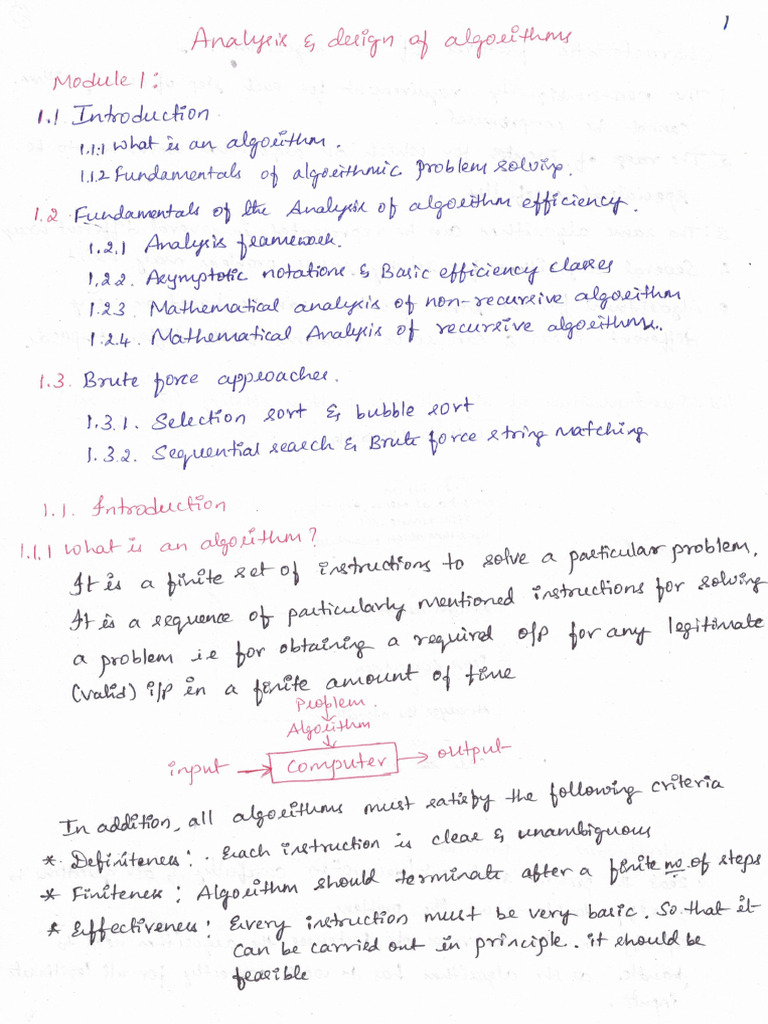 1
Analysis & design of algorithms
Module 1:
1.1 Introduction
1.1.1 what is an algorithm.
1.1.2 Fundamentals of algorithmic problem solving.
1.2 Fundamentals of the Analysis of algorithm efficiency.
1.2.1 Analysis framework.
1.2.2. Asymptotic notations & Basic efficiency classes
1.2.3 Mathematical analysis of non-recursive algorithm
1.2.4. Mathematical Analysis of recursive algorithms.
1.3. Brute force approaches.
1.3.1. Selection sort & bubble sort
1.3.2. Sequential search & Brute force string matching
1.1. Introduction
1.1.1 what is an algorithm?
It is a finite set of instructions to solve a particular problem.
It is a sequence of particularly mentioned instructions for solving
a problem i.e for obtaining a required o/p for any legitimate
(valid) i/p in a finite amount of time
Problem.
Algorithm
input → computer → output
In addition, all algorithms must satisfy the following criteria
* Definiteness: Each instruction is clear & unambiguous
* Finiteness: Algorithm should terminate after a finite no. of steps
* Effectiveness: Every instruction must be very basic. So that it
can be carried out in principle. it should be
feasible